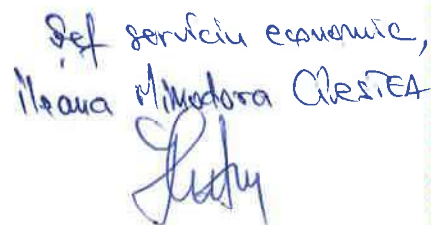 Șef serviciu economic,
Ileana Minodora CRESTEA